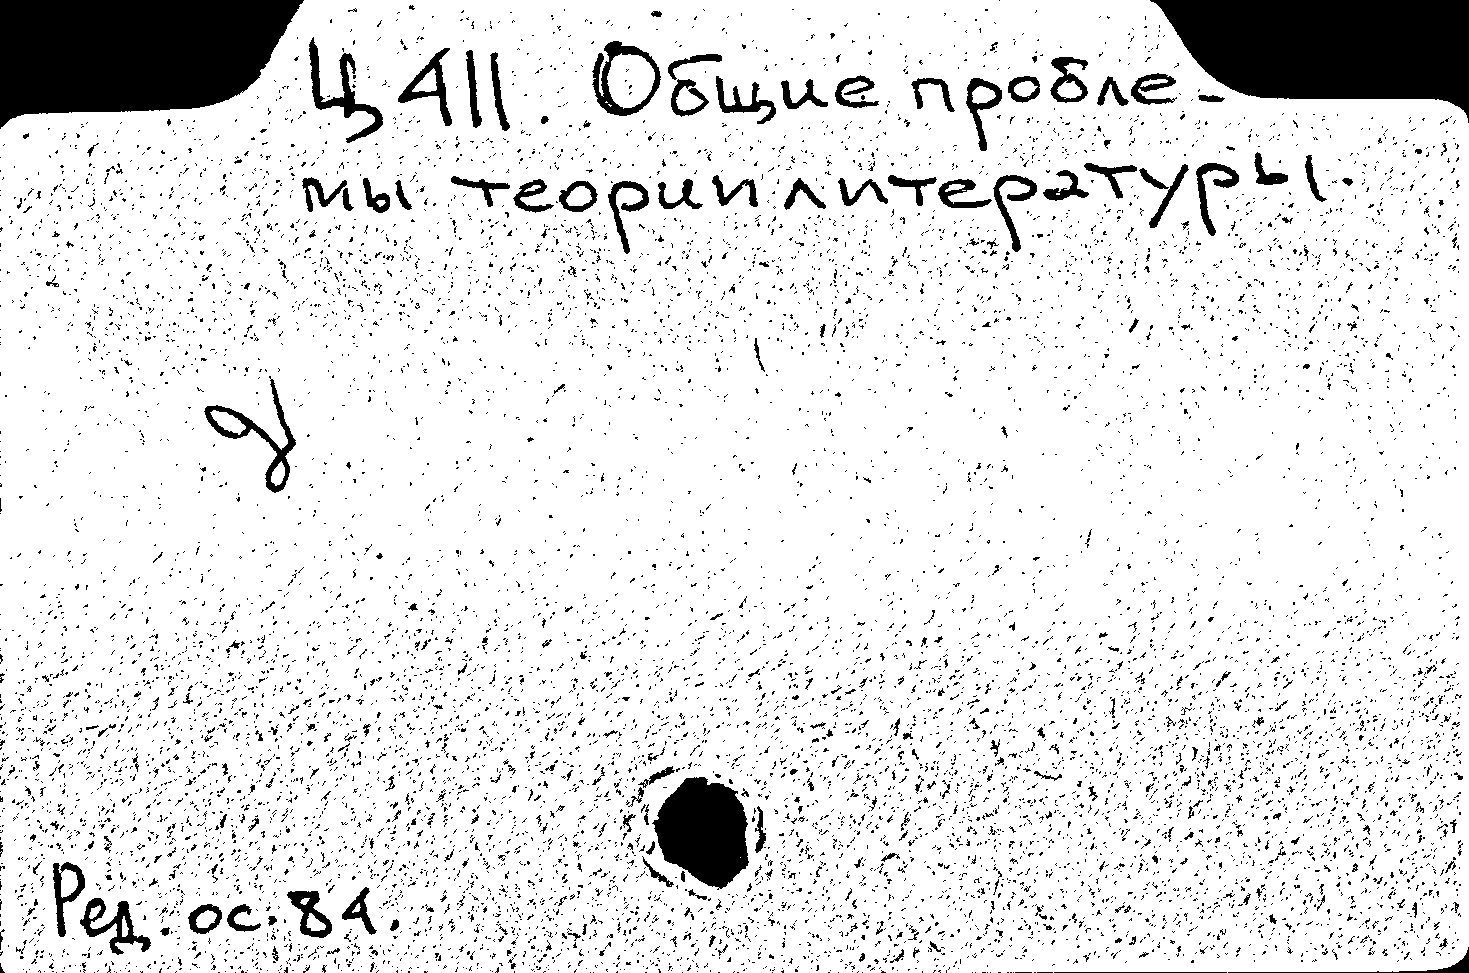 Ц 411. Общие пробле-
мы теории литературы.
Ред. ос. 84.